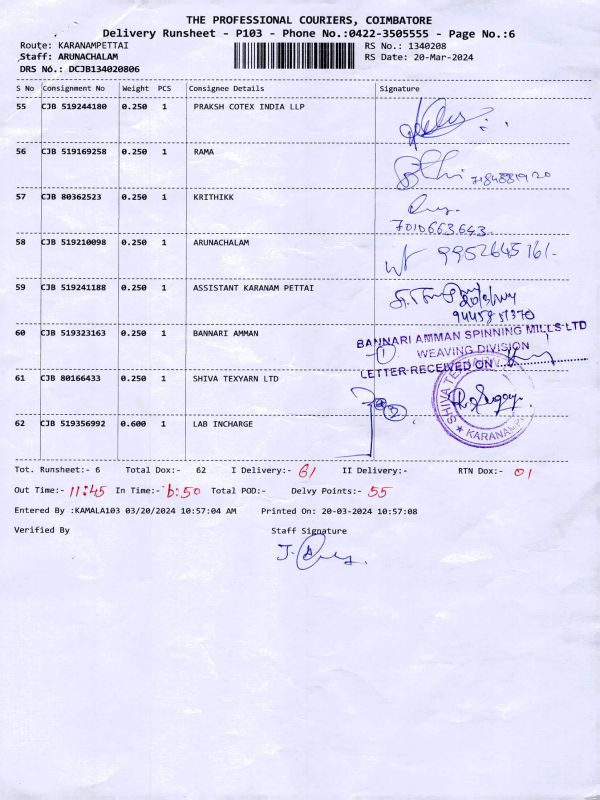 THE PROFESSIONAL COURIERS, COIMBATORE
Delivery Runsheet - P103 - Phone No.:0422-3505555 - Page No.:6
Route: KARANAMPETTAI RS No.: 1340208
Staff: ARUNACHALAM RS Date: 20-Mar-2024
DRS No.: DCJB134020806
S No Consignment No Weight PCS Consignee Details Signature
55 CJB 519244180 0.250 1 PRAKSH COTEX INDIA LLP
56 CJB 519169258 0.250 1 RAMA
57 CJB 80362523 0.250 1 KRITHIKK
7010663643
58 CJB 519210098 0.250 1 ARUNACHALAM
9952645161.
59 CJB 519241188 0.250 1 ASSISTANT KARANAM PETTAI
60 CJB 519323163 0.250 1 BANNARI AMMAN
BANNARI AMMAN SPINNING MILLS LTD
WEAVING DIVISION
LETTER RECEIVED ON
61 CJB 80166433 0.250 1 SHIVA TEXYARN LTD
62 CJB 519356992 0.600 1 LAB INCHARGE
Tot. Runsheet:- 6 Total Dox:- 62 I Delivery:- 61 II Delivery:- RTN Dox:- 01
Out Time:- 11:45 In Time:- 6:50 Total POD:- Delvy Points:- 55
Entered By :KAMALA103 03/20/2024 10:57:04 AM Printed On: 20-03-2024 10:57:08
Verified By Staff Signature